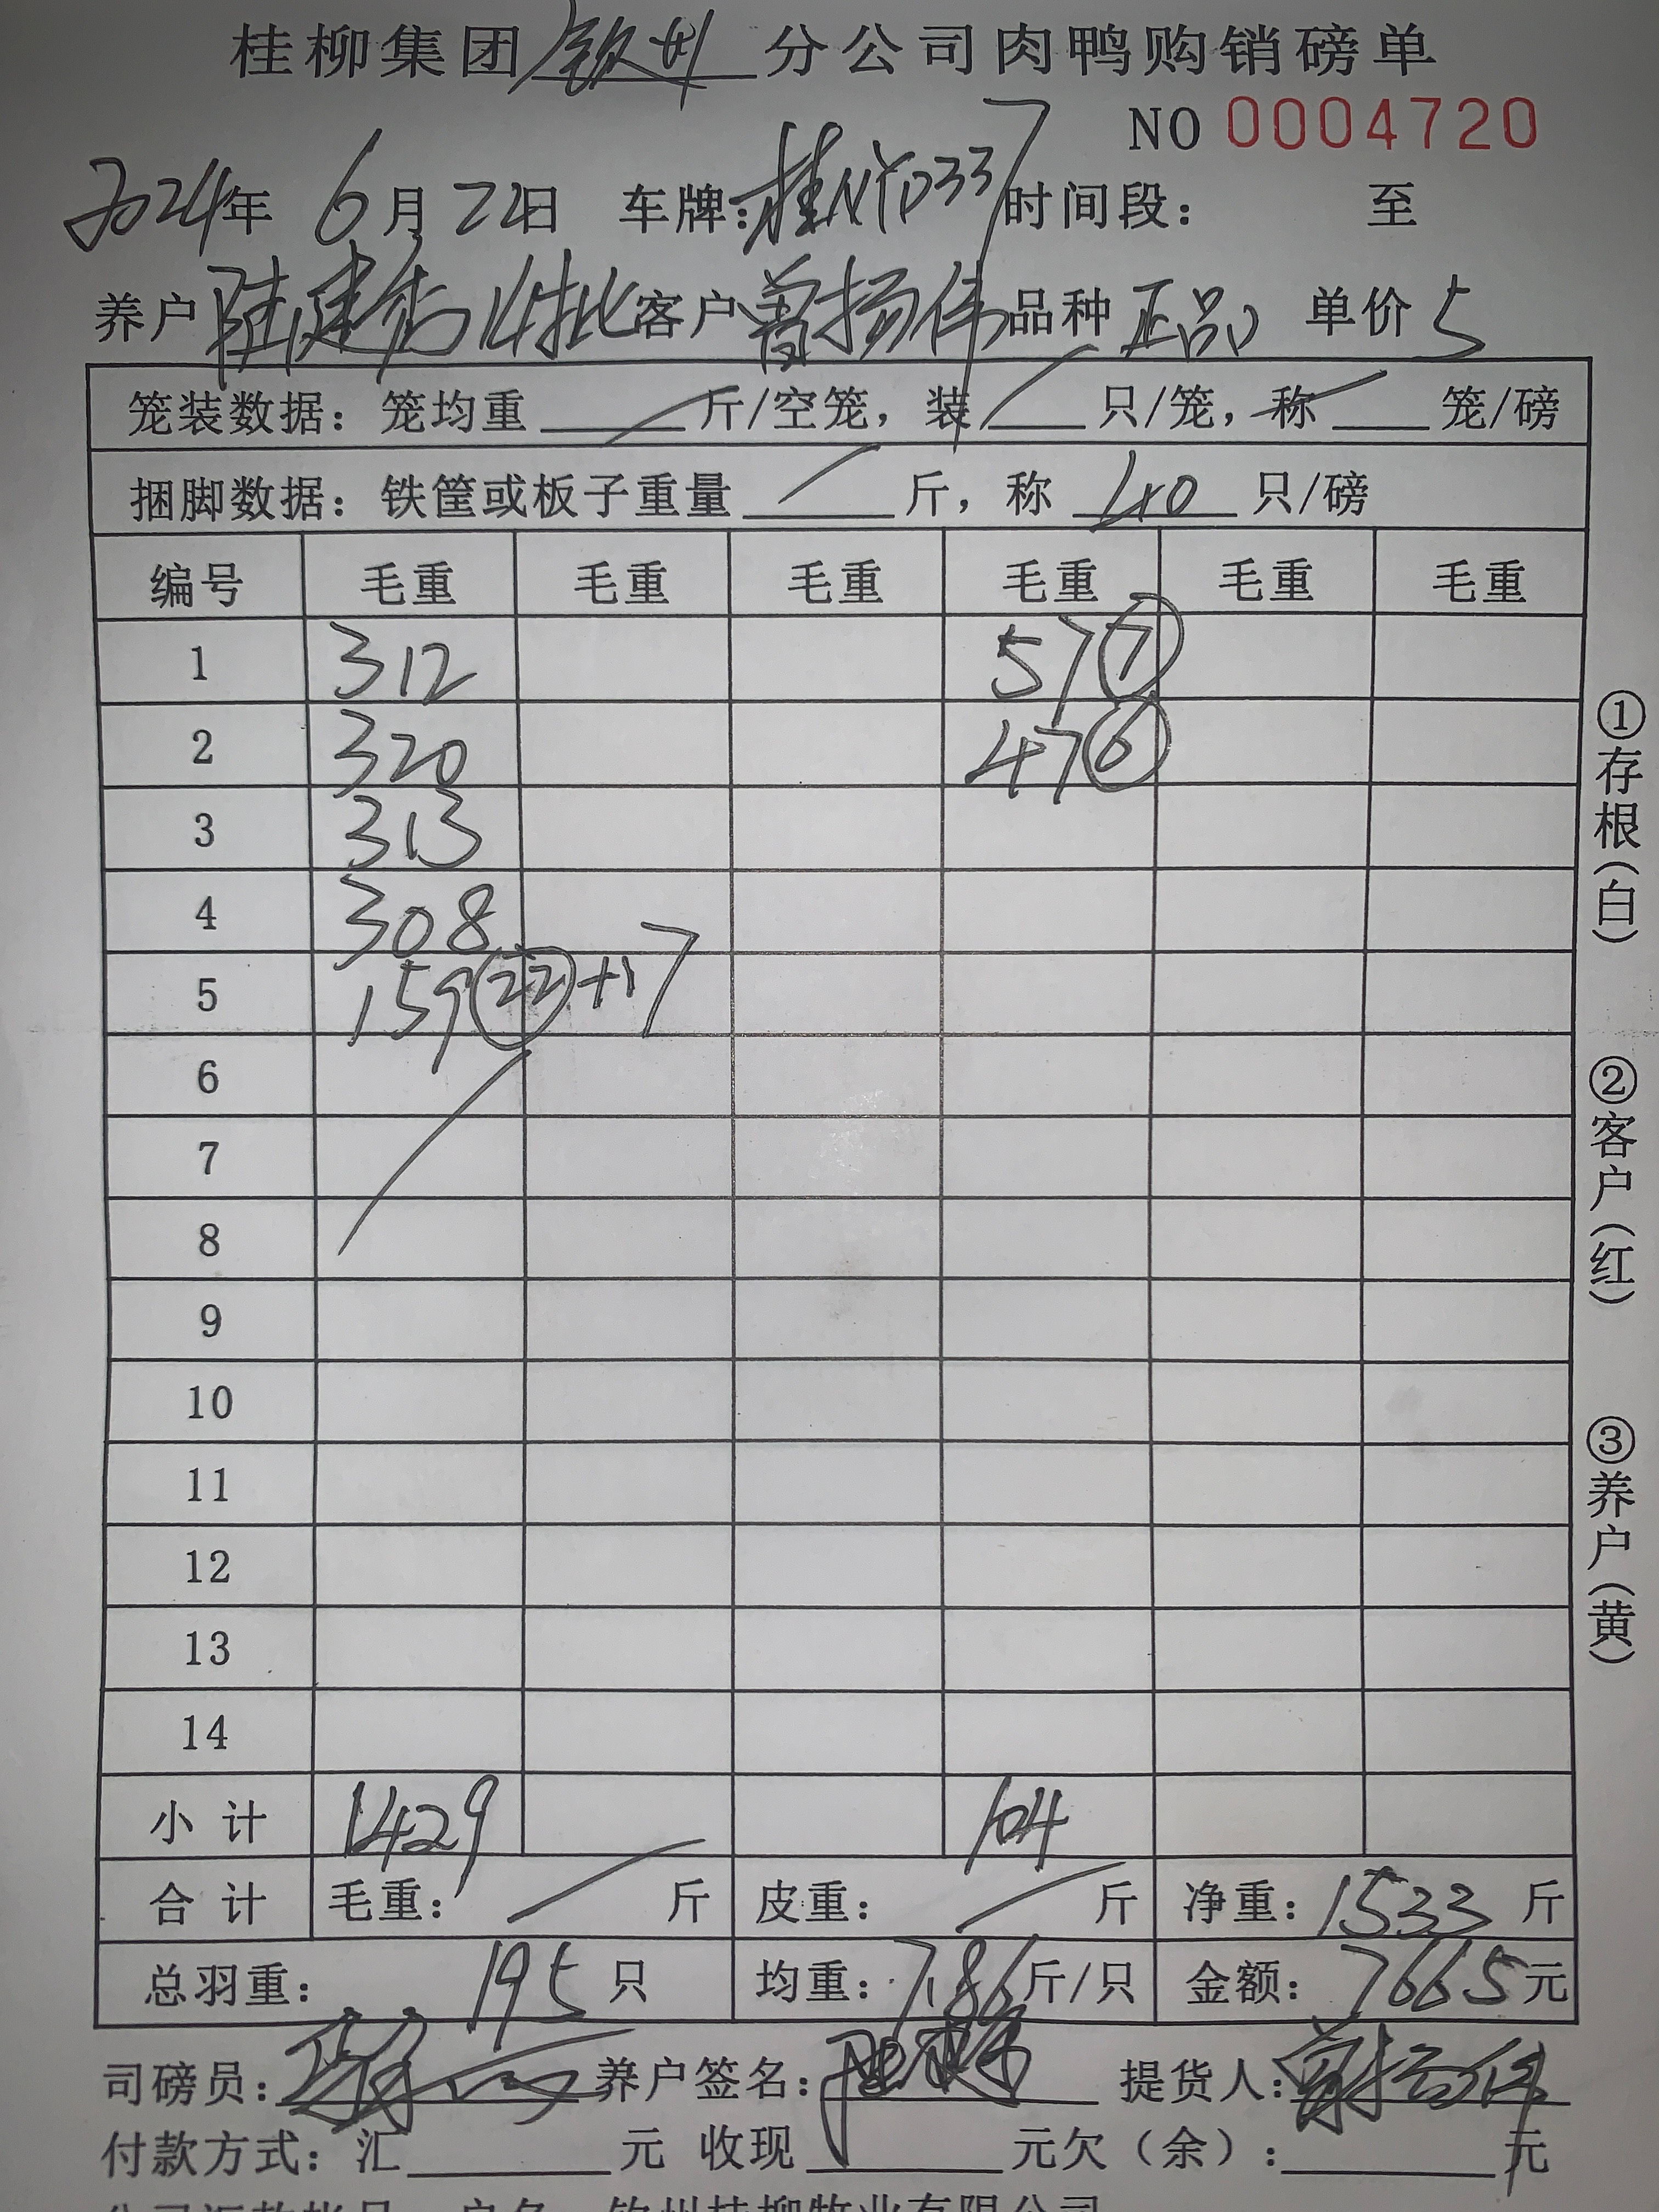 桂柳集团钦州分公司肉鸭购销磅单
NO 0004720
2024年 6月22日 车牌:桂NYD337 时间段: 至
养户 陆建秀 14批 客户 曾扬伟 品种 正品 单价 5
笼装数据: 笼均重 斤/空笼, 装 只/笼, 称 笼/磅
捆脚数据: 铁筐或板子重量 斤, 称 40 只/磅
编号 毛重 毛重 毛重 毛重 毛重 毛重
1 312 57⑦
2 320 47⑥
3 313
4 308
5 159㉒+17
6
7
8
9
10
11
12
13
14
小计 1429 104
合计 毛重: 斤 皮重: 斤 净重: 1533 斤
总羽重: 195 只 均重: 7.86 斤/只 金额: 7665 元
司磅员: 养户签名: 提货人: 曾扬伟
付款方式: 汇 元 收现 元欠(余): 元
公司汇款帐号 户名 钦州桂柳牧业有限公司
①存根(白)
②客户(红)
③养户(黄)